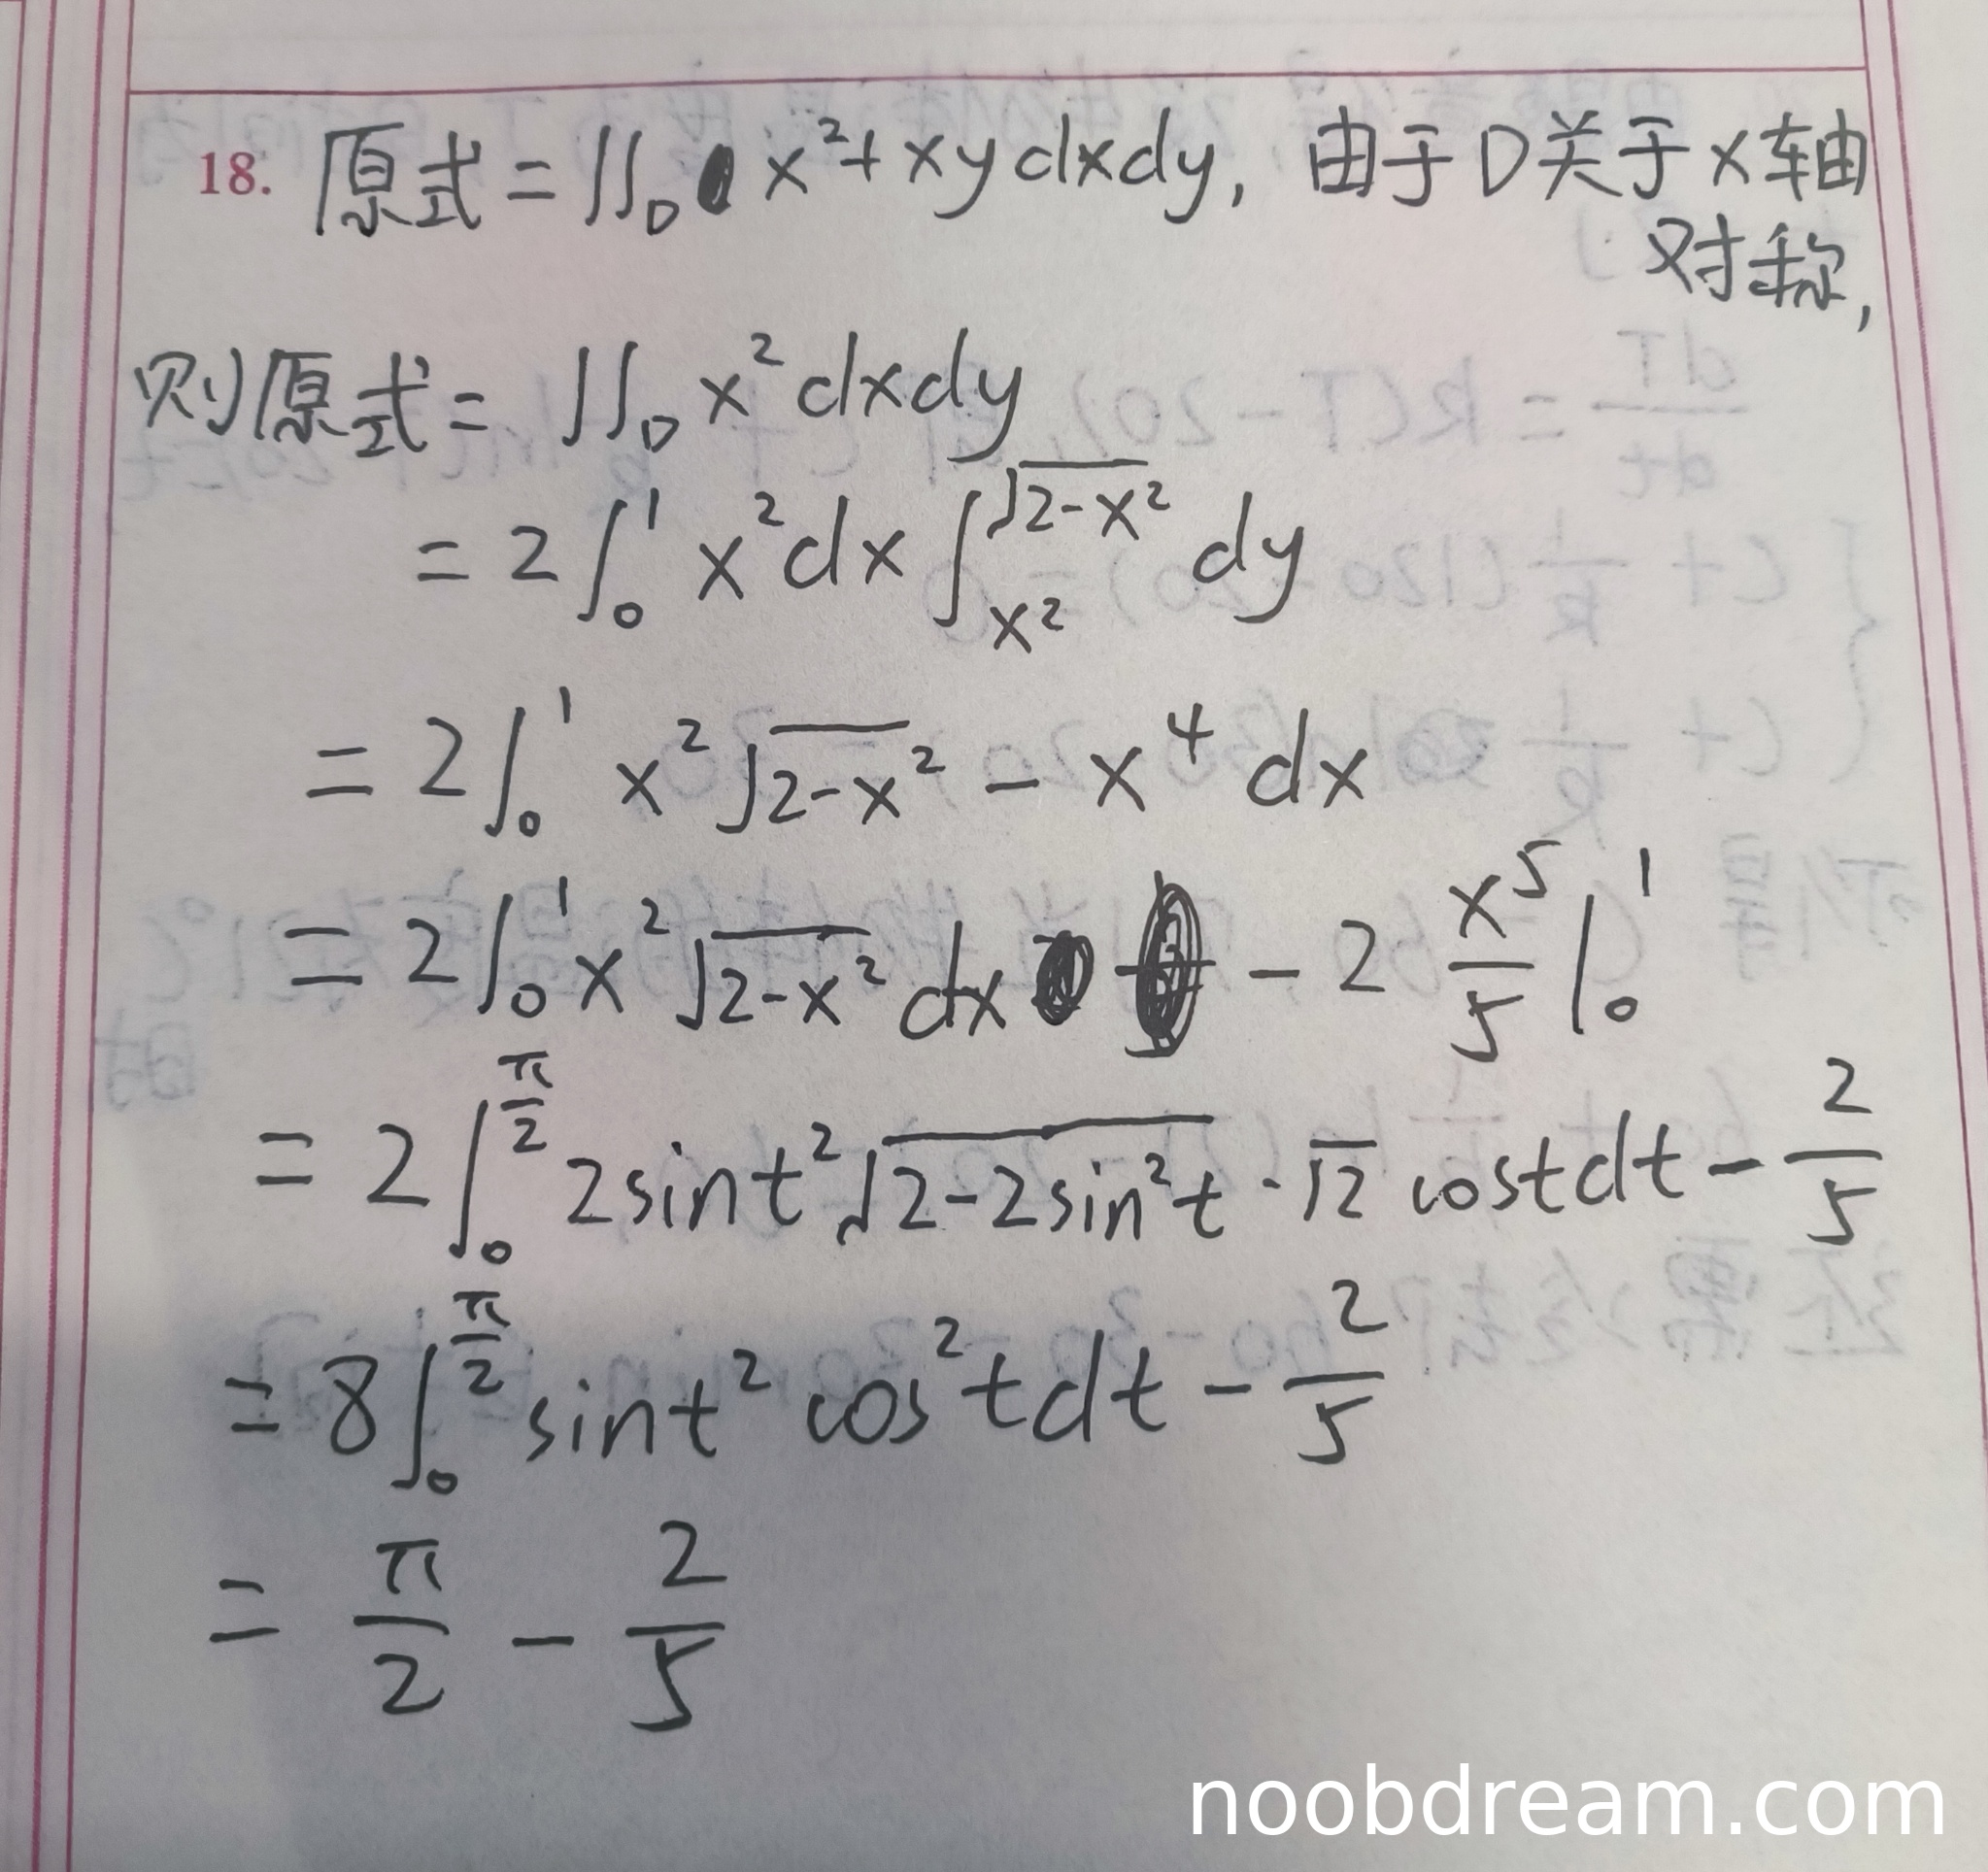 18. 原式 = ∬_D x²+xy dxdy, 由于D关于x轴
对称,
则原式 = ∬_D x² dxdy
= 2∫₀¹ x²dx ∫_{x²}^{√(2-x²)} dy
= 2∫₀¹ x²√(2-x²) - x⁴ dx
= 2∫₀¹ x²√(2-x²) dx - 2 x⁵/5 |₀¹
= 2∫₀^{π/2} 2sint²√(2-2sin²t)·√2 costdt - 2/5
= 8∫₀^{π/2} sint² cos²tdt - 2/5
= π/2 - 2/5
noobdream.com